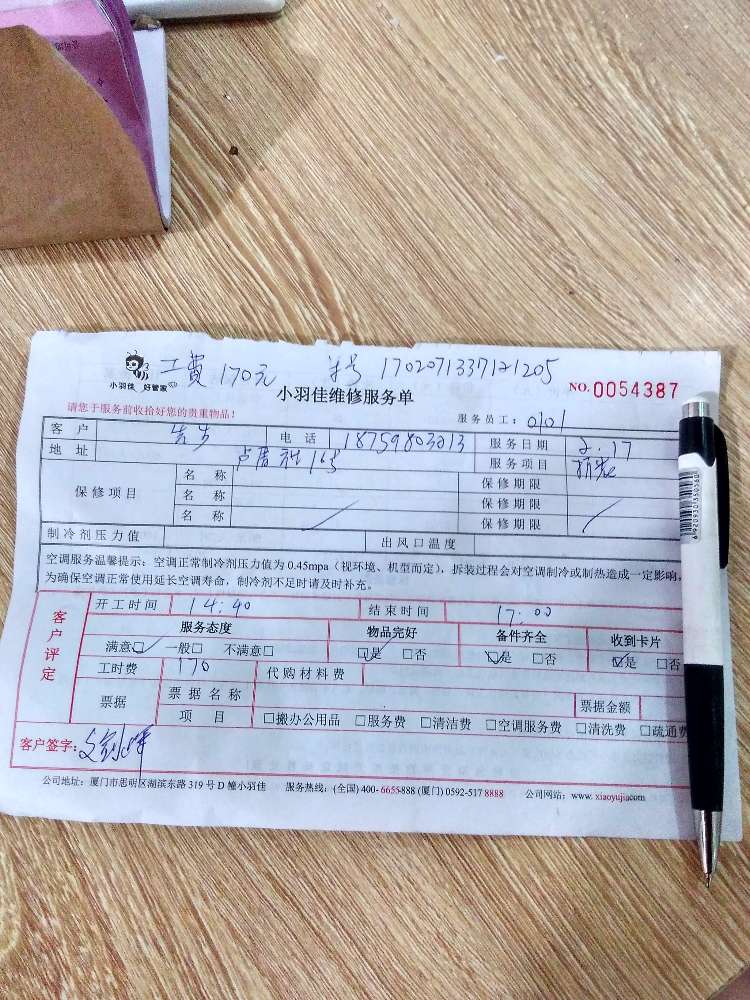 工费 170元 单号 1702071337121205
小羽佳 好管家
小羽佳维修服务单
NO. 0054387
请您于服务前收拾好您的贵重物品!
服务员工: 0101
客户 先生 电话 18759803213 服务日期 2.17
地址 16号 服务项目
保修项目 名称 保修期限
名称 保修期限
名称 保修期限
制冷剂压力值 出风口温度
空调服务温馨提示:空调正常制冷剂压力值为 0.45mpa(视环境、机型而定),拆装过程会对空调制冷或制热造成一定影响,
为确保空调正常使用延长空调寿命,制冷剂不足时请及时补充。
客户评定
开工时间 14:40 结束时间 17:00
服务态度 物品完好 备件齐全 收到卡片
满意☑ 一般□ 不满意□ ☑是 □否 ☑是 □否 ☑是 □否
工时费 170 代购材料费
票据 票据名称 票据金额
项目 □搬办公用品 □服务费 □清洁费 □空调服务费 □清洗费 □疏通费
客户签字:
公司地址:厦门市思明区湖滨东路 319 号 D 幢小羽佳 服务热线:(全国) 400-6655888 (厦门) 0592-517 8888 公司网站:www.xiaoyujia.com
6920930350360